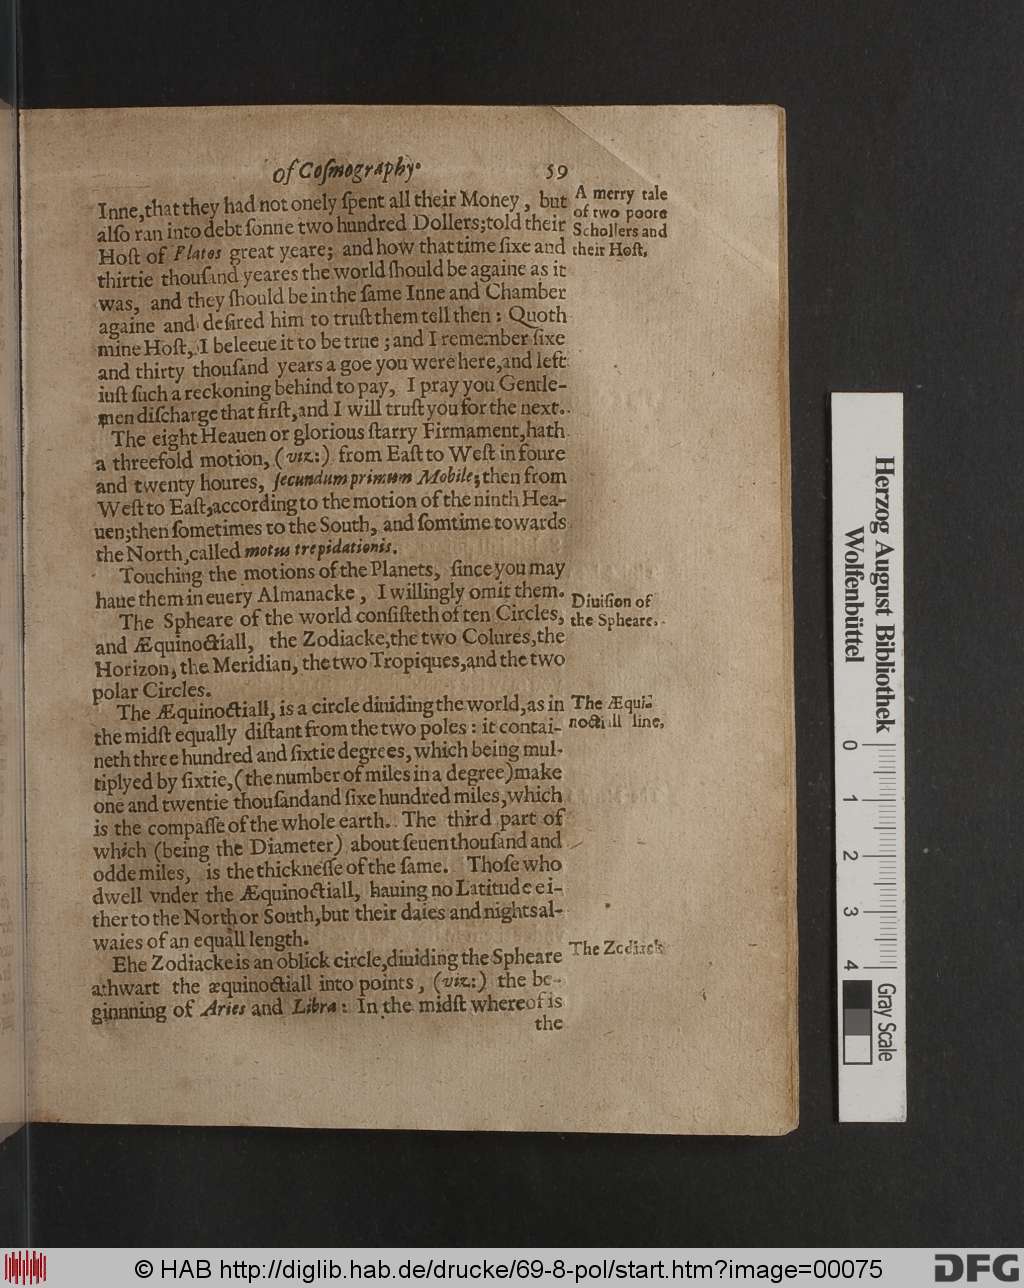 of Coſmography. 59
Inne, that they had not onely ſpent all their Money, but
alſo ran into debt ſonne two hundred Dollers; told their
Hoſt of Platos great yeare; and how that time ſixe and
thirtie thouſand yeares the world ſhould be againe as it
was, and they ſhould be in the ſame Inne and Chamber
againe and deſired him to truſt them tell then: Quoth
mine Hoſt, I beleeue it to be true; and I remember ſixe
and thirty thouſand years a goe you were here, and left
iuſt ſuch a reckoning behind to pay, I pray you Gentle-
men diſcharge that firſt, and I will truſt you for the next.
A merry tale
of two poore
Schollers and
their Hoſt,
The eight Heauen or glorious ſtarry Firmament, hath
a threefold motion, (viz:) from Eaſt to Weſt in foure
and twenty houres, ſecundum primum Mobile; then from
Weſt to Eaſt, according to the motion of the ninth Hea-
uen; then ſometimes to the South, and ſomtime towards
the North, called motus trepidationis.
Touching the motions of the Planets, ſince you may
haue them in euery Almanacke, I willingly omit them.
The Spheare of the world conſiſteth of ten Circles,
and Æquinoctiall, the Zodiacke, the two Colures, the
Horizon, the Meridian, the two Tropiques, and the two
polar Circles.
Diuiſion of
the Spheare.
The Æquinoctiall, is a circle diuiding the world, as in
the midſt equally diſtant from the two poles: it contai-
neth three hundred and ſixtie degrees, which being mul-
tiplyed by ſixtie, (the number of miles in a degree) make
one and twentie thouſand and ſixe hundred miles, which
is the compaſſe of the whole earth. The third part of
which (being the Diameter) about ſeuen thouſand and
odde miles, is the thickneſſe of the ſame. Thoſe who
dwell vnder the Æquinoctiall, hauing no Latitude ei-
ther to the North or South, but their daies and nights al-
waies of an equall length.
The Æqui-
noctiall line,
Ehe Zodiacke is an oblick circle, diuiding the Spheare
athwart the æquinoctiall into points, (viz:) the be-
ginnning of Aries and Libra: In the midſt whereof is
the
The Zodiack
Herzog August Bibliothek
Wolfenbüttel
0 1 2 3 4
Gray Scale
© HAB http://diglib.hab.de/drucke/69-8-pol/start.htm?image=00075
DFG